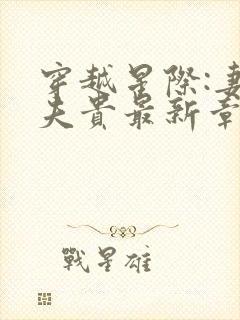 穿越星際:妻
夫貴最新章
戰星雄